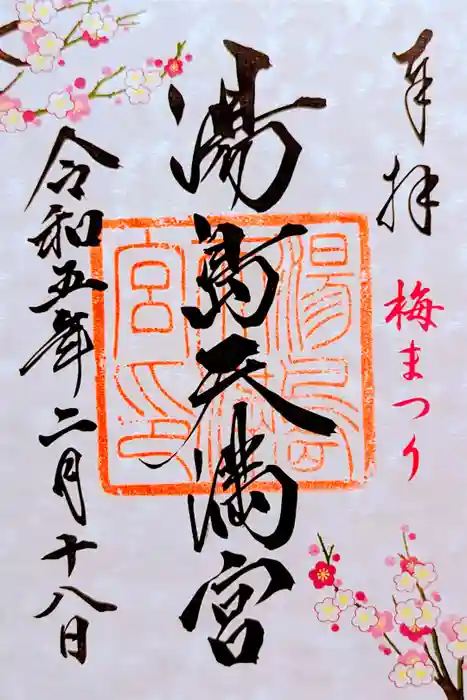 奉拝
梅まつり
湯島天満宮
湯島天満宮印
令和五年二月十八日